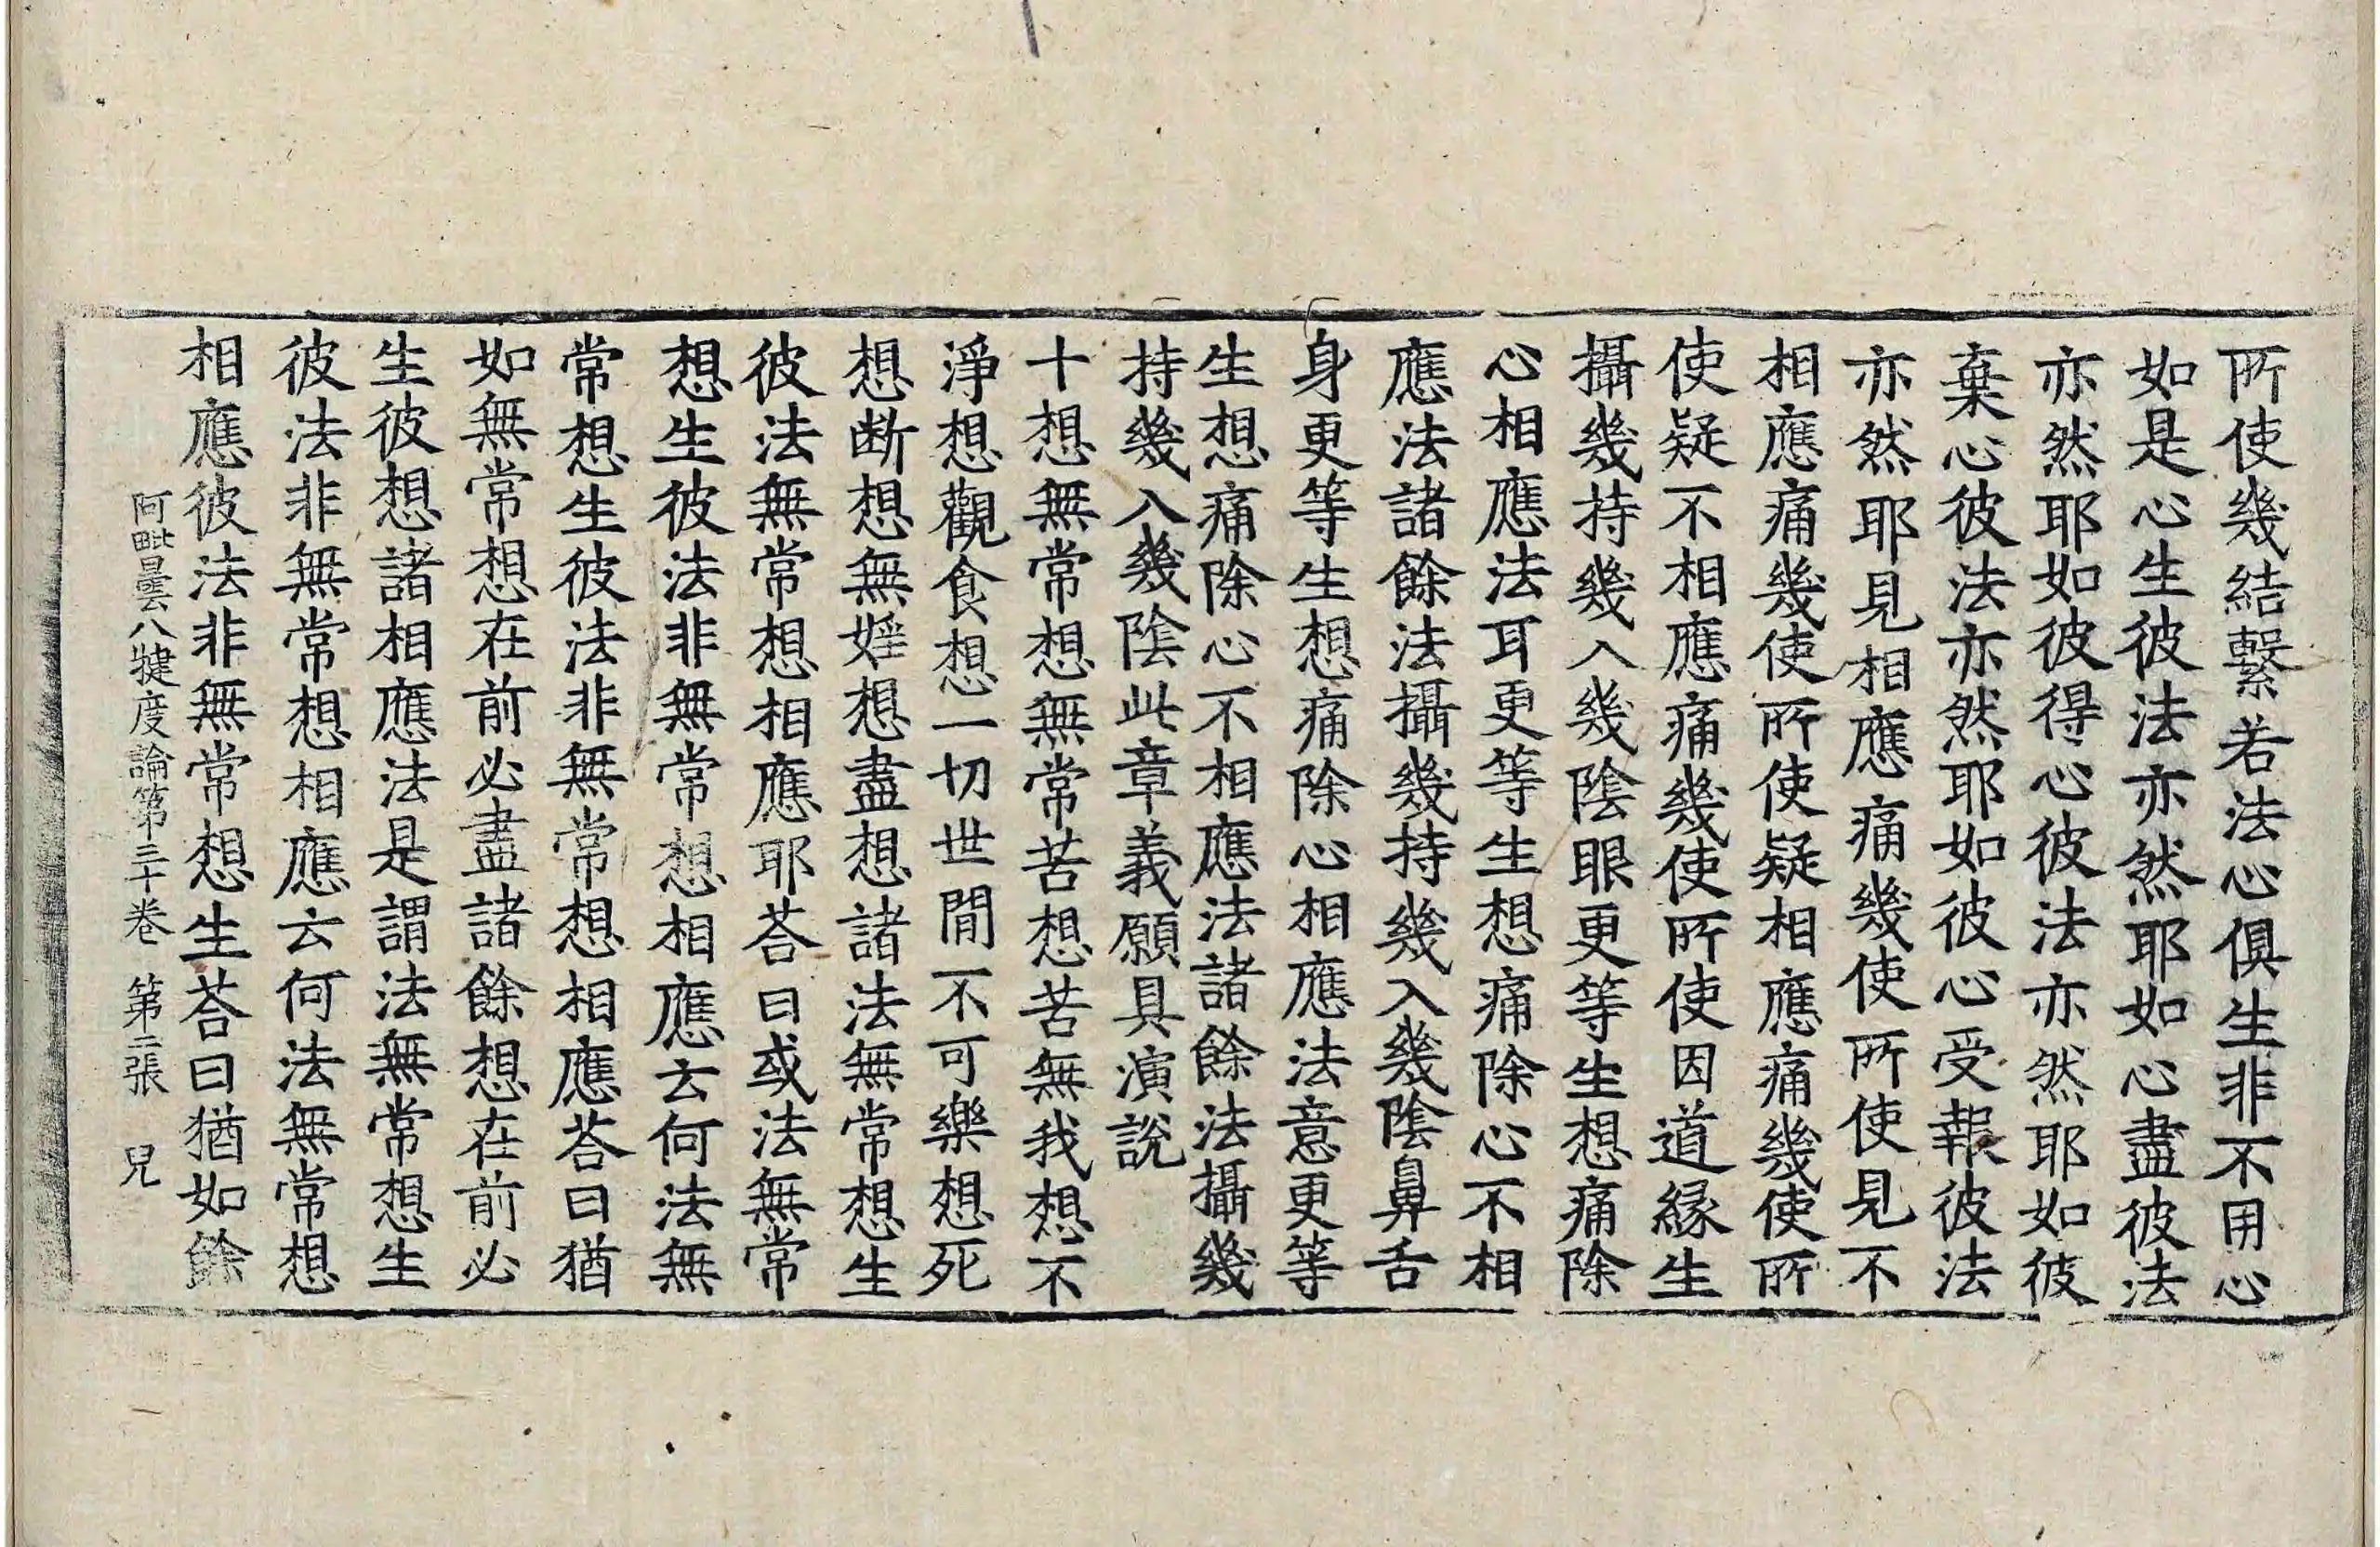 所使幾結繫若法心俱生非不用心
如是心生彼法亦然耶如心盡彼法
亦然耶如彼得心彼法亦然耶如彼
棄心彼法亦然耶如彼心受報彼法
亦然耶見相應痛幾使所使見不
相應痛幾使所使疑相應痛幾使所
使疑不相應痛幾使所使因道緣生
攝幾持幾入幾陰眼更等生想痛除
心相應法耳更等生想痛除心不相
應法諸餘法攝幾持幾入幾陰鼻舌
身更等生想痛除心相應法意更等
生想痛除心不相應法諸餘法攝幾
持幾入幾陰此章義願具演說
十想無常想無常苦想苦無我想不
淨想觀食想一切世間不可樂想死
想斷想無婬想盡想諸法無常想生
彼法無常想相應耶荅曰或法無常
想生彼法非無常想相應云何法無
常想生彼法非無常想相應荅曰猶
如無常想在前必盡諸餘想在前必
生彼想諸相應法是謂法無常想生
彼法非無常想相應云何法無常想
相應彼法非無常想生荅曰猶如餘
阿毗曇八犍度論第三十卷 第二張 兒